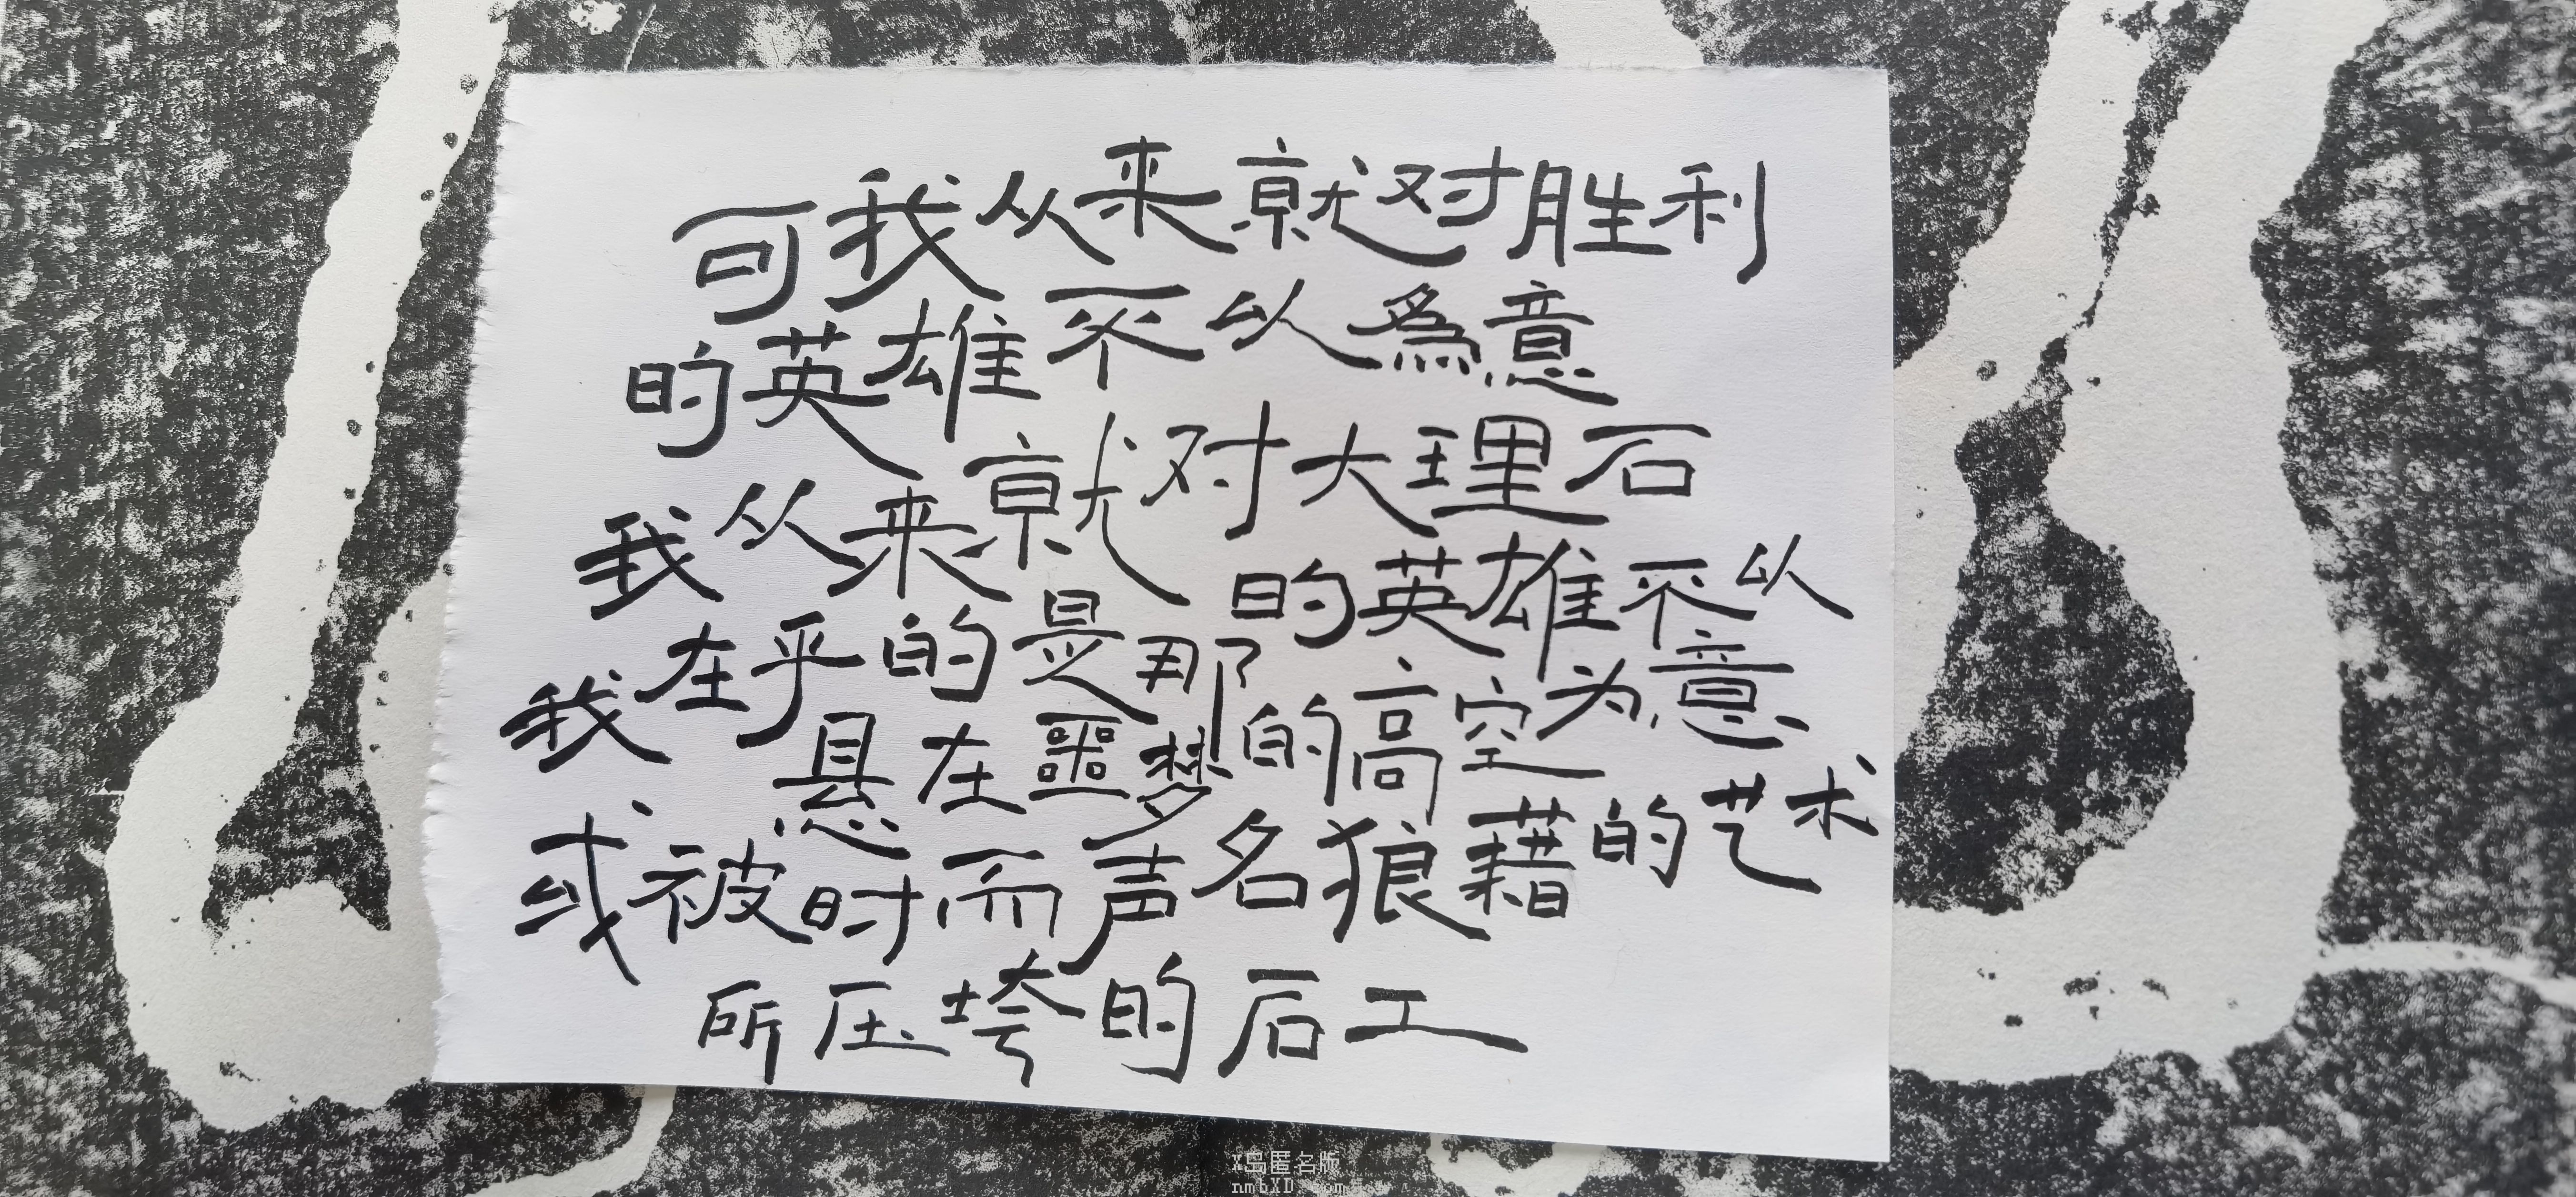 可我从来就对胜利
的英雄不以為意
我从来就对大理石
的英雄不以为意
我在乎的是那
悬在噩梦的高空
或被时而声名狼藉的艺术
所压垮的后工
X岛匿名版
nmbXD.com